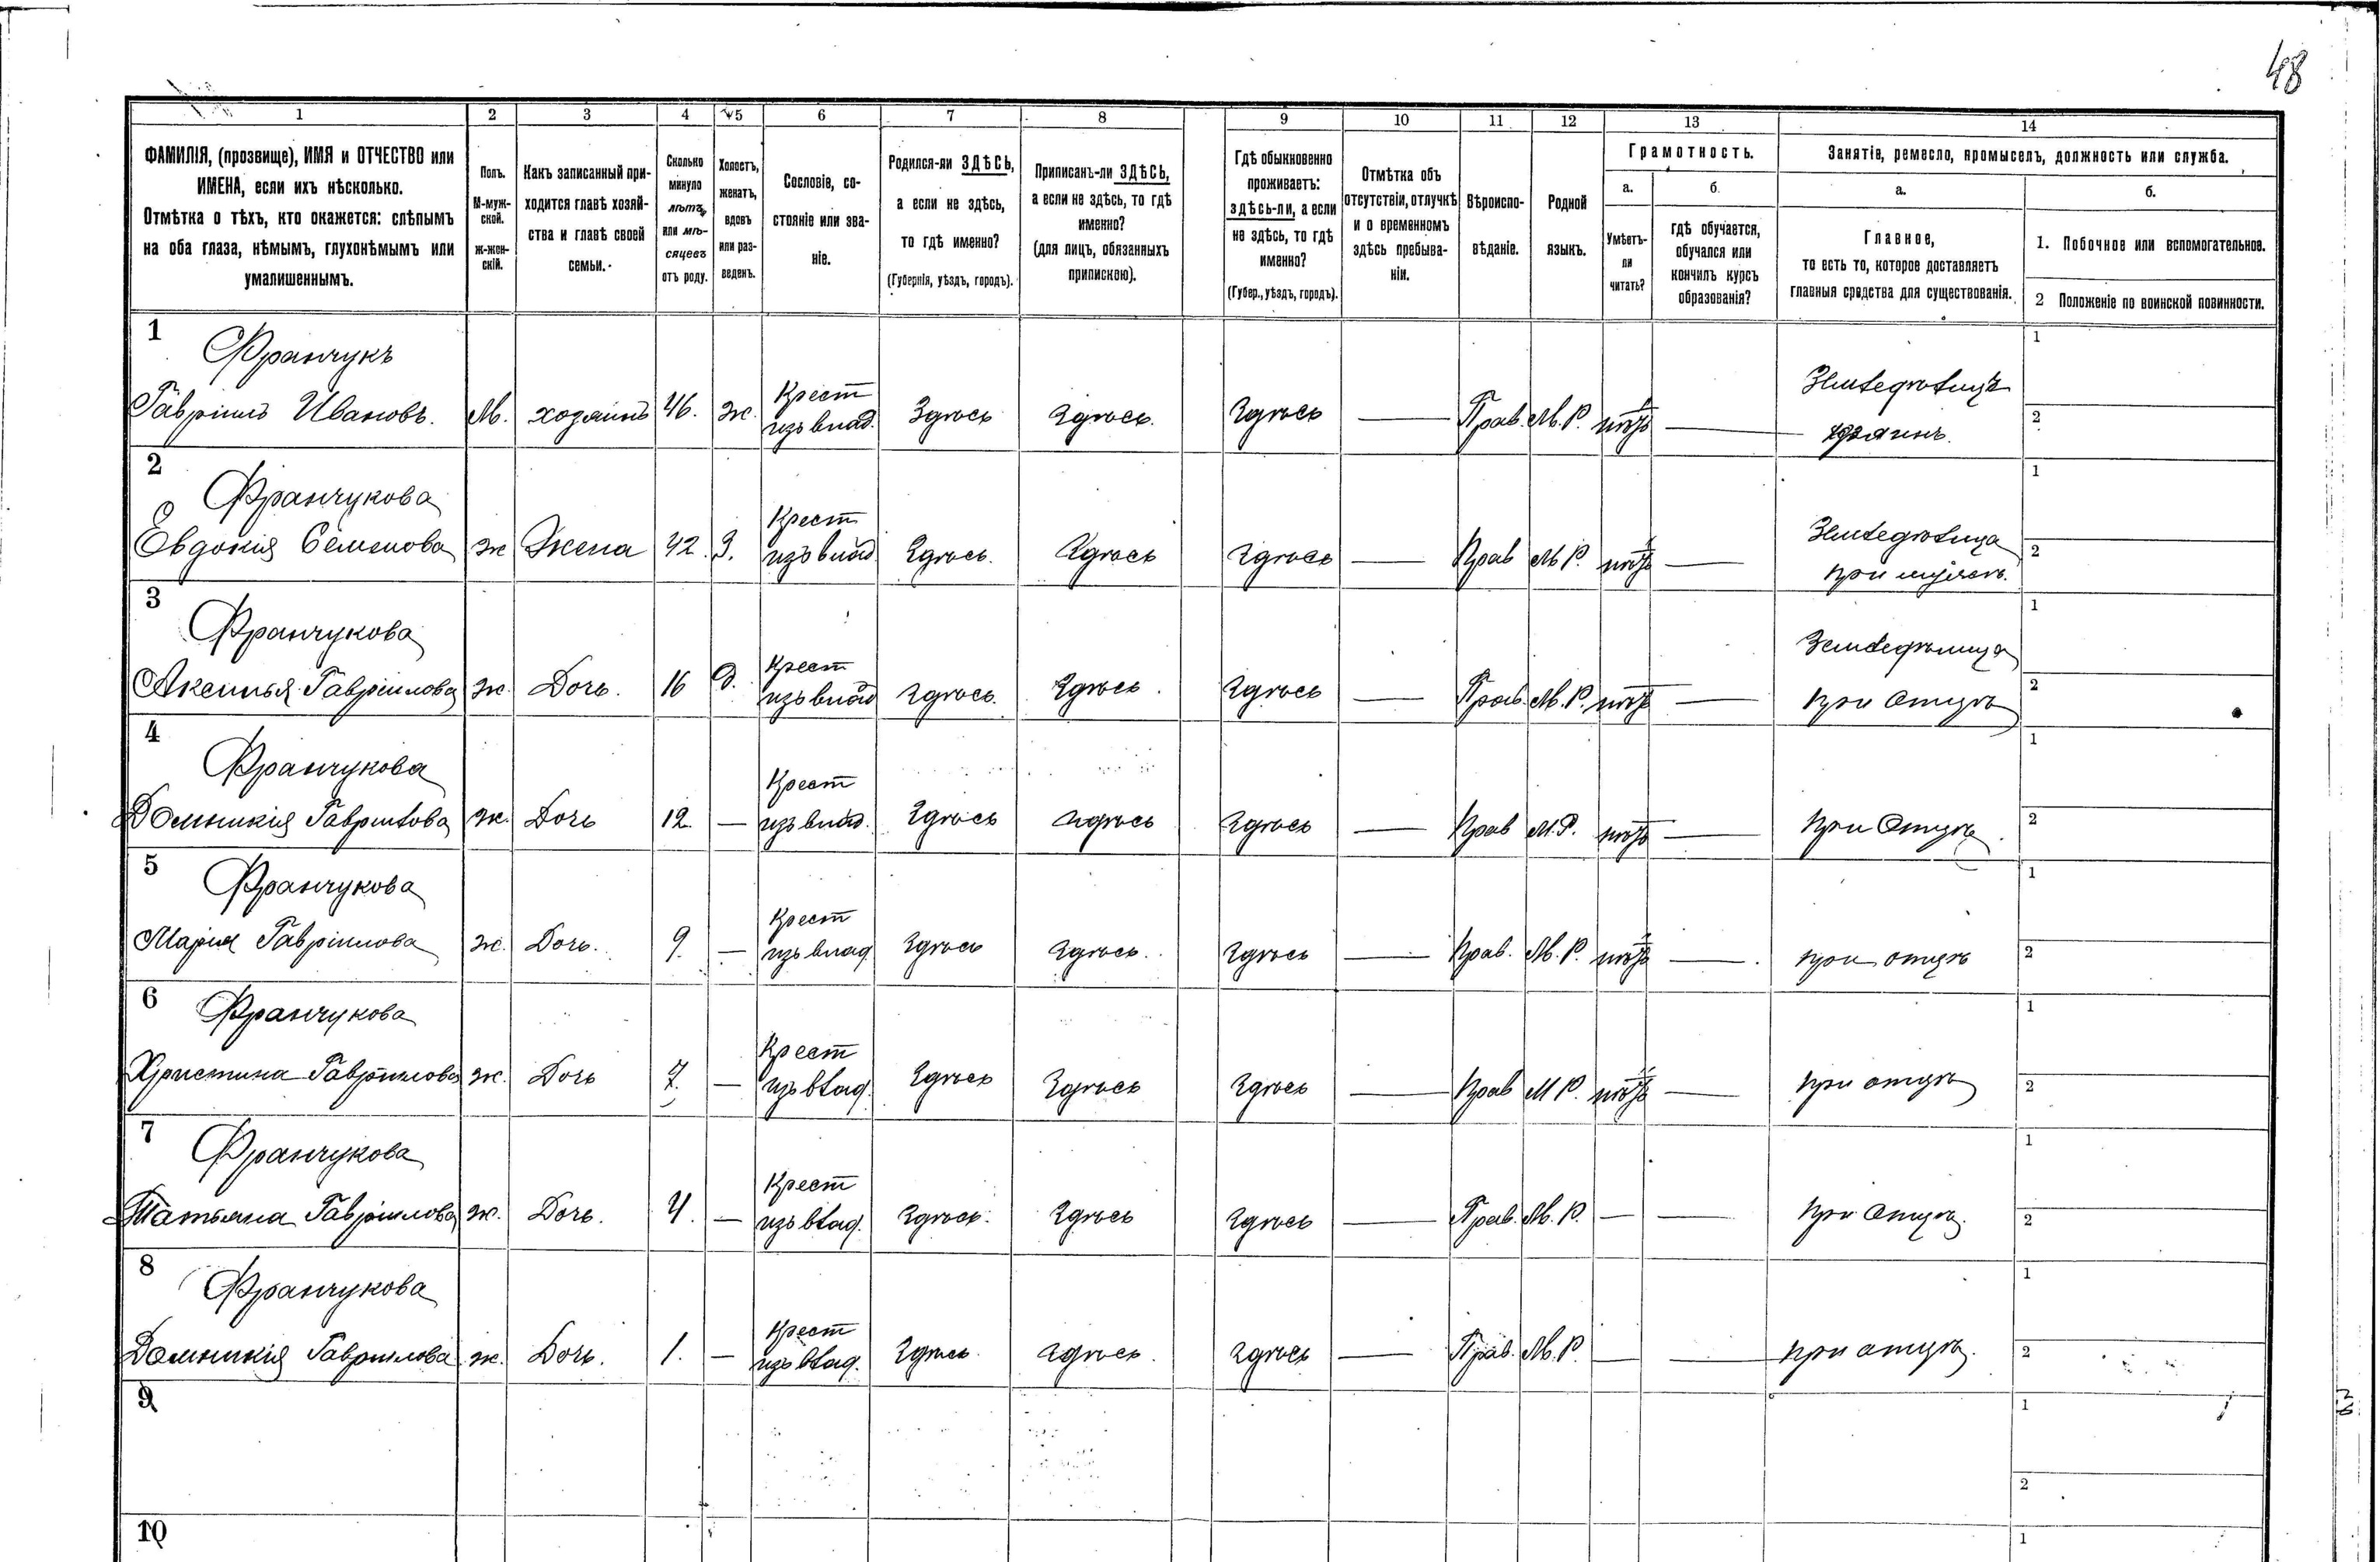 48
1 2 3 4 5 6 7 8 9 10 11 12 13 14
ФАМИЛІЯ, (прозвище), ИМЯ и ОТЧЕСТВО или
ИМЕНА, если ихъ нѣсколько.
Отмѣтка о тѣхъ, кто окажется: слѣпымъ
на оба глаза, нѣмымъ, глухонѣмымъ или
умалишеннымъ.
Полъ.
М-муж-
ской.
ж-жен-
скій.
Какъ записанный при-
ходится главѣ хозяй-
ства и главѣ своей
семьи.
Сколько
минуло
лѣтъ
или мѣ-
сяцевъ
отъ роду.
Холостъ,
женатъ,
вдовъ
или раз-
веденъ.
Сословіе, со-
стояніе или зва-
ніе.
Родился-ли ЗДѢСЬ,
а если не здѣсь,
то гдѣ именно?
(Губернія, уѣздъ, городъ).
Приписанъ-ли ЗДѢСЬ,
а если не здѣсь, то гдѣ
именно?
(для лицъ, обязанныхъ
припискою).
Гдѣ обыкновенно
проживаетъ:
здѣсь-ли, а если
не здѣсь, то гдѣ
именно?
(Губер., уѣздъ, городъ).
Отмѣтка объ
отсутствіи, отлучкѣ
и о временномъ
здѣсь пребыва-
ніи.
Вѣроиспо-
вѣданіе.
Родной
языкъ.
Грамотность.
а.
Умѣетъ-
ли
читать?
б.
гдѣ обучается,
обучался или
кончилъ курсъ
образованія?
Занятіе, ремесло, промыселъ, должность или служба.
а.
Главное,
то есть то, которое доставляетъ
главныя средства для существованія.
б.
1. Побочное или вспомогательное.
2 Положеніе по воинской повинности.
1 Франчукъ 1
Гавріилъ Ивановъ. М. хозяинъ 46. ж. Крест изъ влад. Здѣсь Здѣсь. Здѣсь — Прав. М. Р. нѣтъ — Земледѣлецъ хозяинъ. 2
2 Франчукова 1
Евдокія Семенова ж Жена 42. З. Крест изъ влад Здѣсь. Здѣсь Здѣсь — Прав М Р. нѣтъ — Земледѣлица при мужѣ. 2
3 Франчукова 1
Аксинья Гавріилова ж. Дочь. 16 Д. Крест изъ влад Здѣсь. Здѣсь. Здѣсь — Прав. М. Р. нѣтъ — Земледѣлица при Отцѣ 2
4 Франчукова 1
Домникія Гаврилова ж. Дочь 12. — Крест изъ влад. Здѣсь Здѣсь Здѣсь — Прав М. Р. нѣтъ — при Отцѣ. 2
5 Франчукова 1
Марія Гавріилова ж. Дочь. 9. — Крест изъ влад Здѣсь Здѣсь. Здѣсь — Прав. М. Р. нѣтъ — при отцѣ 2
6 Франчукова 1
Христина Гаврилова ж. Дочь 7. — Крест изъ влад. Здѣсь Здѣсь Здѣсь — Прав М Р. нѣтъ — при отцѣ 2
7 Франчукова 1
Татьяна Гавріилова ж. Дочь. 4. — Крест изъ влад. Здѣсь. Здѣсь Здѣсь — Прав. М. Р. — — при Отцѣ. 2
8 Франчукова 1
Домникія Гаврилова ж. Дочь. 1. — Крест изъ влад. Здѣсь Здѣсь. Здѣсь — Прав. М. Р. — — при отцѣ. 2
9 1
2
10 1